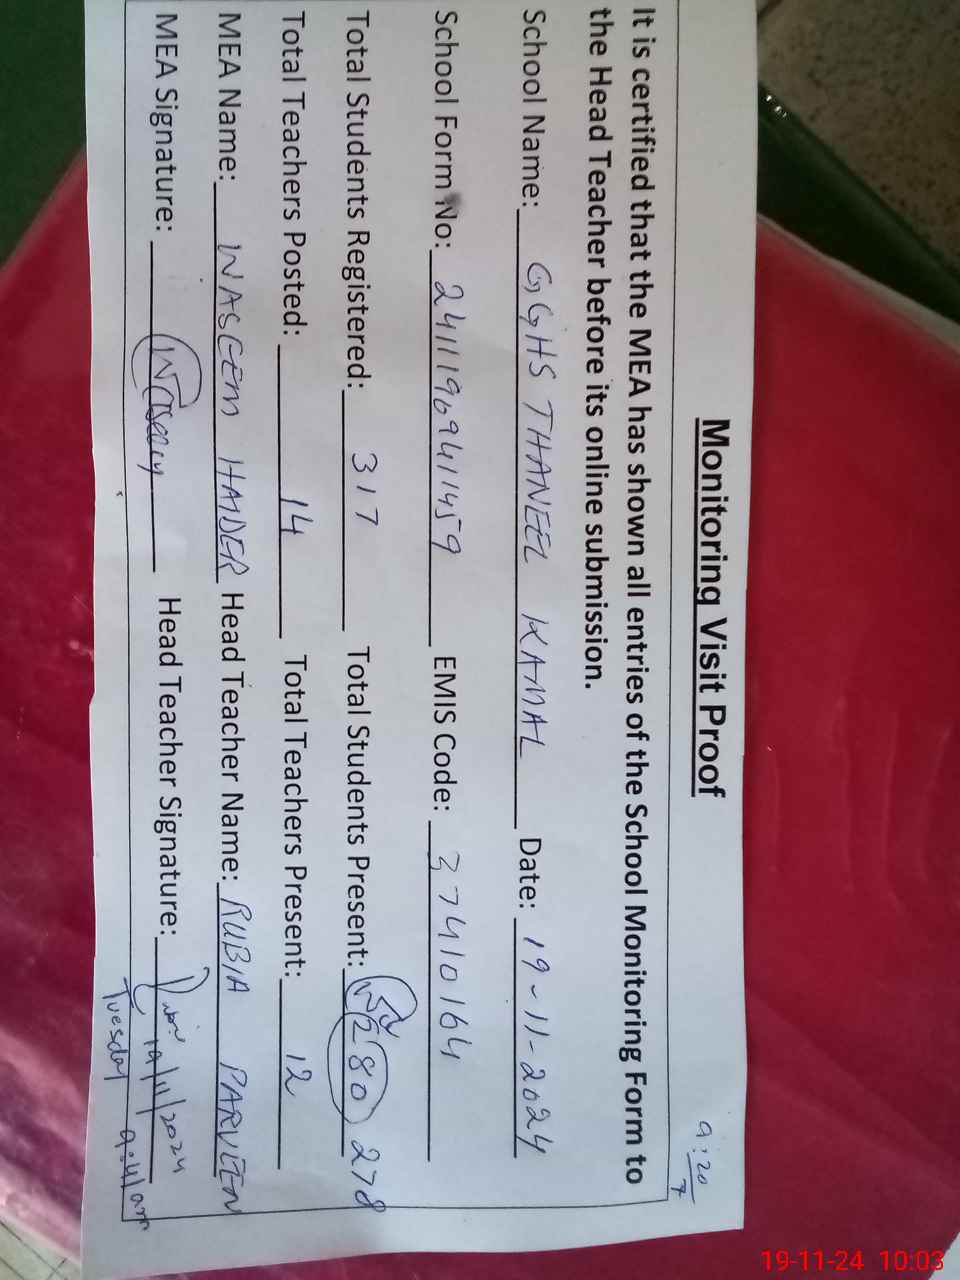 9:20
Monitoring Visit Proof
It is certified that the MEA has shown all entries of the School Monitoring Form to
the Head Teacher before its online submission.
School Name: GGHS THANEEL KAMAL Date: 19-11-2024
School Form No: 24111969411459 EMIS Code: 37410164
Total Students Registered: 317 Total Students Present: 280 278
Total Teachers Posted: 14 Total Teachers Present: 12
MEA Name: WASEEM HAIDER Head Teacher Name: RUBIA PARVEEN
MEA Signature: Head Teacher Signature: 19/11/2024
Tuesday 9:41am
19-11-24 10:03